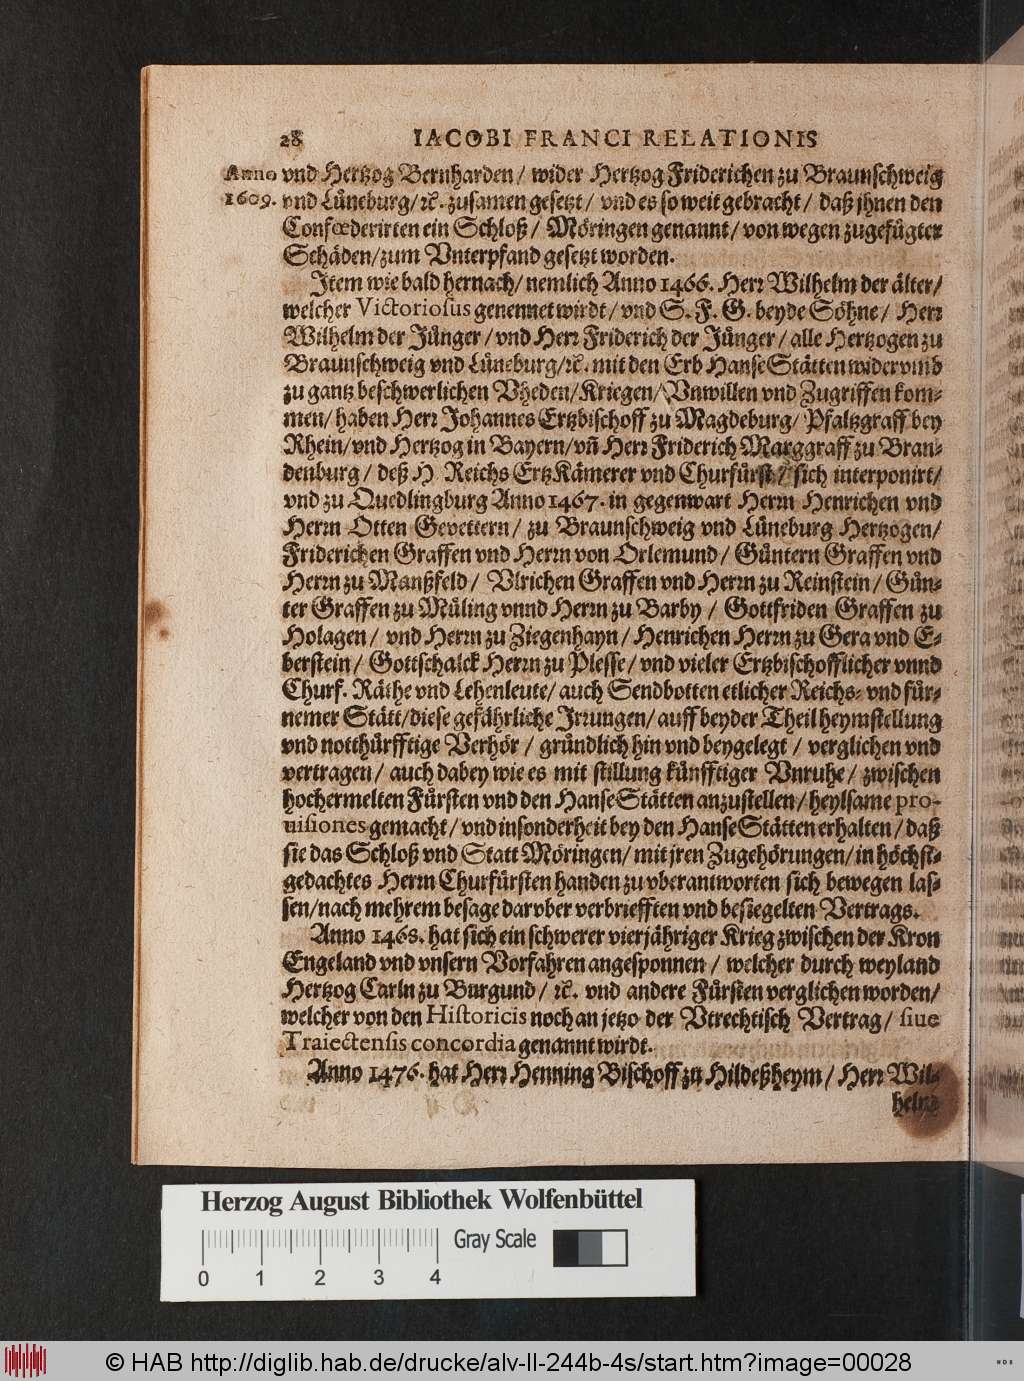 28 IACOBI FRANCI RELATIONIS
Anno vnd Hertzog Bernharden / wider Hertzog Friderichen zu Braunschweig
1609. vnd Lůneburg/ꝛc. zusamen gesetzt / vnd es so weit gebracht / daß jhnen den
Confœderirten ein Schloß / Mőringen genannt / von wegen zugefůgter
Schäden/zum Vnterpfand gesetzt worden.
Item wie bald hernach/ nemlich Anno 1466. Herꝛ Wilhelm der älter/
welcher Victoriosus genennet wirdt / vnd S. F. G. beyde Söhne / Herꝛ
Wilhelm der Jůnger / vnd Herꝛ Friderich der Jůnger / alle Hertzogen zu
Braunschweig vnd Lůneburg/ꝛc. mit den Erb HanseStätten widervmb
zu gantz beschwerlichen Vheden/Kriegen/Vnwillen vnd Zugriffen kom-
men/ haben Herꝛ Johannes Ertzbischoff zu Magdeburg/ Pfaltzgraff bey
Rhein/vnd Hertzog in Bayern/vn̄ Herꝛ Friderich Marggraff zu Bran-
denburg / deß H Reichs ErtzKämerer vnd Churfůrst / sich interponirt/
vnd zu Quedlingburg Anno 1467. in gegenwart Herꝛn Henrichen vnd
Herꝛn Otten Gevettern / zu Braunschweig vnd Lůneburg Hertzogen/
Friderichen Graffen vnd Herꝛn von Orlemund / Gůntern Graffen vnd
Herꝛn zu Manßfeld / Vlrichen Graffen vnd Herꝛn zu Reinstein / Gůn-
ter Graffen zu Můling vnnd Herꝛn zu Barby / Gottfriden Graffen zu
Holagen / vnd Herꝛn zu Ziegenhayn / Henrichen Herꝛn zu Gera vnd E-
berstein / Gottschalck Herꝛn zu Plesse / vnd vieler Ertzbischofflicher vnnd
Churf. Räthe vnd Lehenleute/ auch Sendbotten etlicher Reichs- vnd fůr-
nemer Stätt/diese gefährliche Jrꝛungen/ auff beyder Theil heymstellung
vnd notthůrfftige Verhör / grůndlich hin vnd beygelegt / verglichen vnd
vertragen / auch dabey wie es mit stillung kůnfftiger Vnruhe / zwischen
hochermelten Fůrsten vnd den HanseStätten anzustellen / heylsame pro-
uisiones gemacht / vnd insonderheit bey den HanseStätten erhalten / daß
sie das Schloß vnd Statt Möringen/ mit jren Zugehörungen/ in höchst-
gedachtes Herꝛn Churfůrsten handen zu vberantworten sich bewegen las-
sen/nach mehrem besage darvber verbriefften vnd besiegelten Vertrags.
Anno 1468. hat sich ein schwerer vierjähriger Krieg zwischen der Kron
Engeland vnd vnsern Vorfahren angesponnen / welcher durch weyland
Hertzog Carln zu Burgund / ꝛc. vnd andere Fůrsten verglichen worden/
welcher von den Historicis noch an jetzo der Vtrechtisch Vertrag / siue
Traiectensis concordia genannt wirdt.
Anno 1476. hat Herꝛ Henning Bischoff zu Hildeßheym / Herꝛ Wil-
helm
Herzog August Bibliothek Wolfenbüttel
Gray Scale
0 1 2 3 4
© HAB http://diglib.hab.de/drucke/alv-ll-244b-4s/start.htm?image=00028